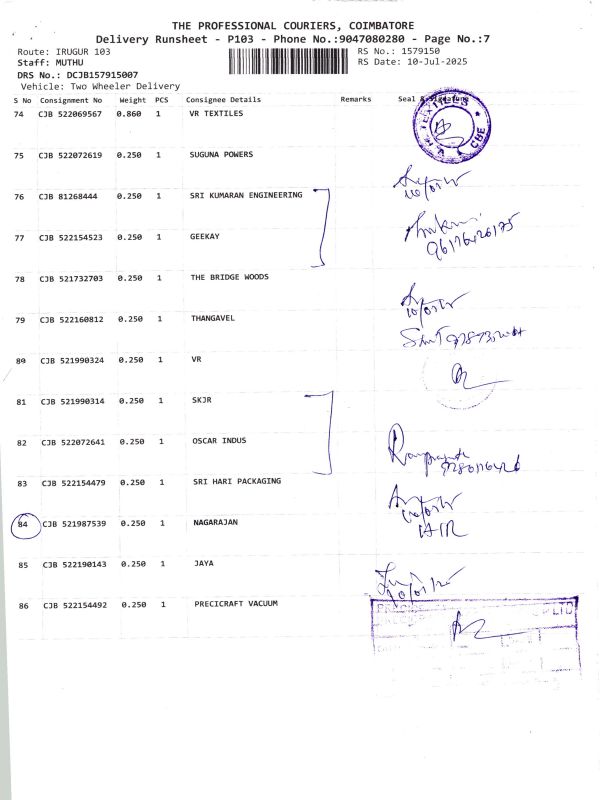 THE PROFESSIONAL COURIERS, COIMBATORE
Delivery Runsheet - P103 - Phone No.:9047080280 - Page No.:7
Route: IRUGUR 103
RS No.: 1579150
Staff: MUTHU
RS Date: 10-Jul-2025
DRS No.: DCJB157915007
Vehicle: Two Wheeler Delivery
S No Consignment No Weight PCS Consignee Details Remarks Seal & Signature
74 CJB 522069567 0.860 1 VR TEXTILES
75 CJB 522072619 0.250 1 SUGUNA POWERS
76 CJB 81268444 0.250 1 SRI KUMARAN ENGINEERING
77 CJB 522154523 0.250 1 GEEKAY
96176426175
78 CJB 521732703 0.250 1 THE BRIDGE WOODS
79 CJB 522160812 0.250 1 THANGAVEL
89 CJB 521990324 0.250 1 VR
81 CJB 521990314 0.250 1 SKJR
82 CJB 522072641 0.250 1 OSCAR INDUS
83 CJB 522154479 0.250 1 SRI HARI PACKAGING
84 CJB 521987539 0.250 1 NAGARAJAN
85 CJB 522190143 0.250 1 JAYA
86 CJB 522154492 0.250 1 PRECICRAFT VACUUM